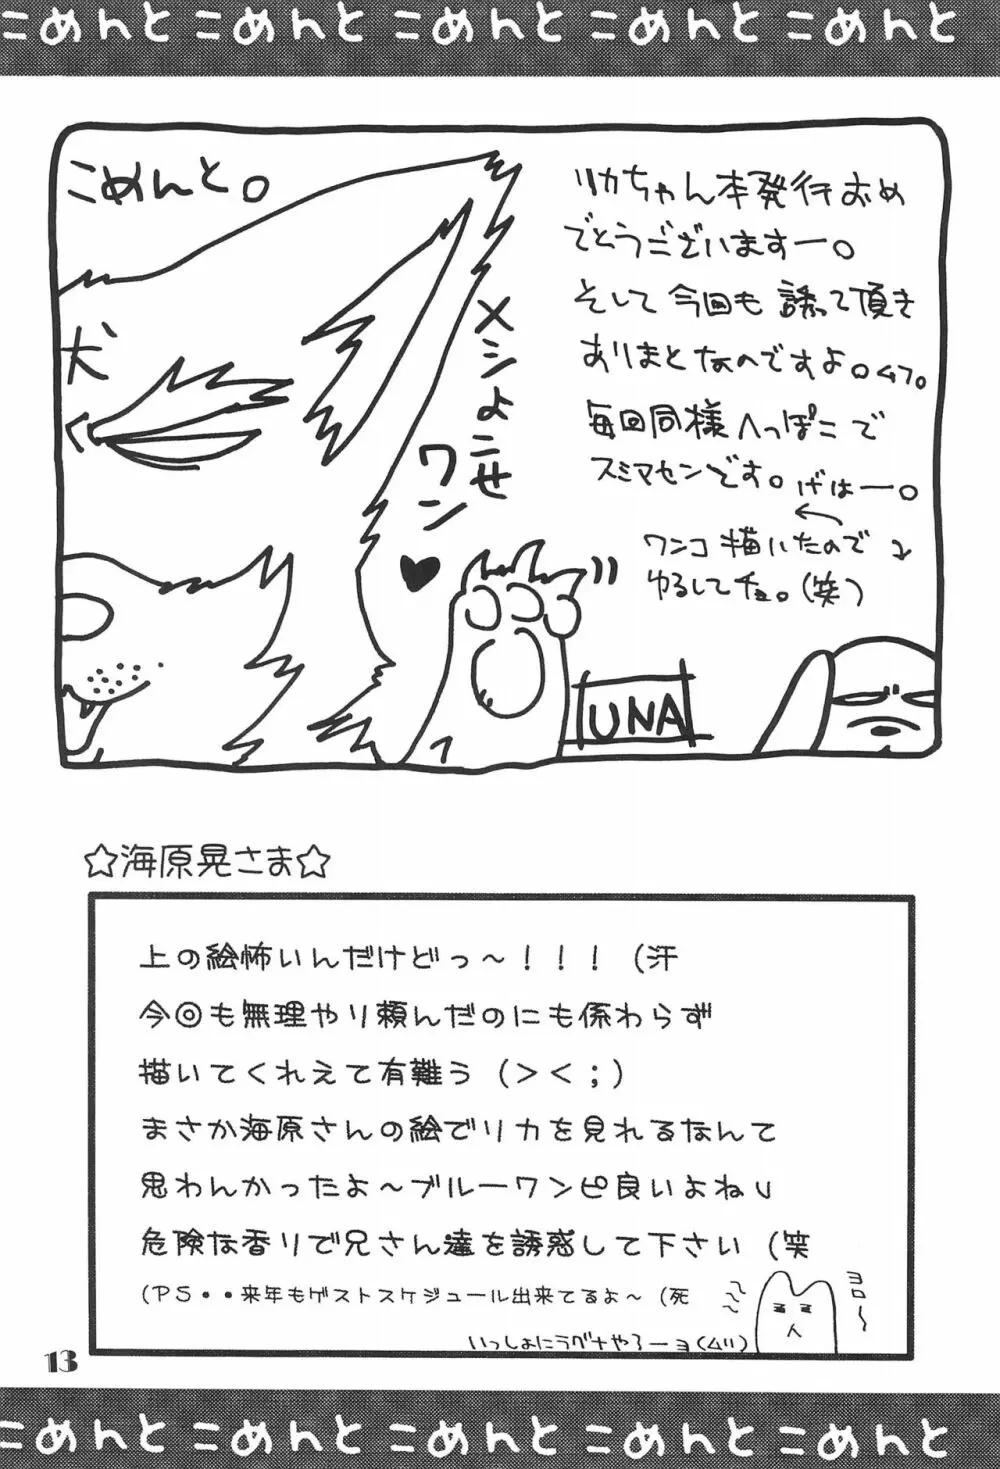 こめんと こめんと こめんと こめんと こめんと
こめんと。
リカちゃん本発行おめ
でとうございますー。
そして今回も誘って頂き
ありまとなのですよ。ムフ。
毎回同様へっぽこで
スミマセンです。げはー。
ワンコ描いたので
ゆるしてチョ。(笑)
犬
メシよこせ
ワン
UNA
☆海原晃さま☆
上の絵怖いんだけどっ～！！！（汗
今回も無理やり頼んだのにも係わらず
描いてくれえて有難う（＞＜；）
まさか海原さんの絵でリカを見れるなんて
思わんかったよ～ブルーワンピ良いよね
危険な香りで兄さん達を誘惑して下さい（笑
（ＰＳ・・来年もゲストスケジュール出来てるよ～（死
いっしょにラグナやろーヨ(ムリ)
ヨロ～
13
こめんと こめんと こめんと こめんと こめんと